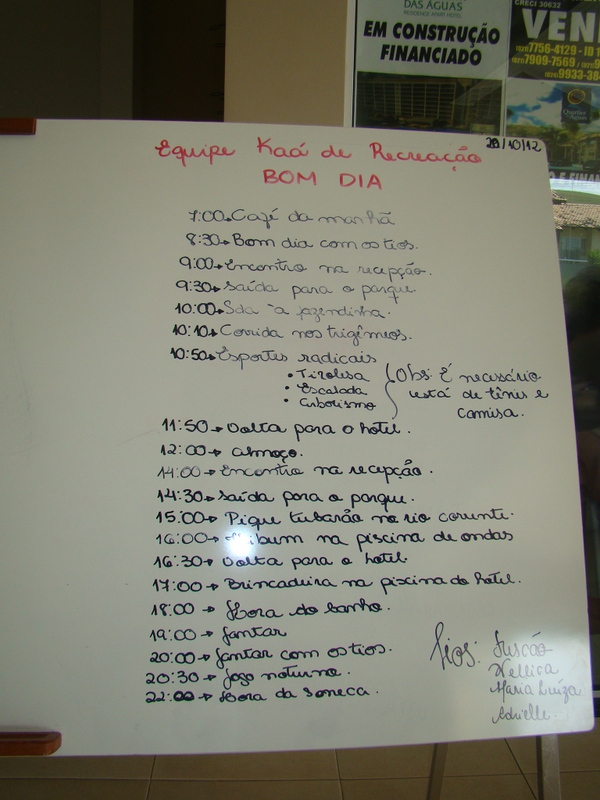 DAS ÁGUAS
RESIDENCE APART HOTEL
EM CONSTRUÇÃO
FINANCIADO
CRECI 30632
VEN
7756-4129 - ID
7909-7569
9933-38
Quartier
Águas
20/10/12
Equipe Kaá de Recreação
BOM DIA
7:00→Café da manhã
8:30→Bom dia com os tios.
9:00→Encontro na recepção.
9:30→Saída para o parque
10:00→Ida à fazendinha.
10:10→Corrida nos trigêmeos.
10:50→Esportes radicais
• Tirolesa
• Escalada
• Arborismo
Obs: É necessário
está de tênis e
camisa.
11:50→Volta para o hotel.
12:00→almoço.
14:00→Encontro na recepção.
14:30→Saída para o parque.
15:00→Pique tubarão no rio corrente.
16:00→Tibum na piscina de ondas
16:30→Volta para o hotel.
17:00→Brincadeira na piscina do hotel.
18:00→Hora do banho.
19:00→Jantar
20:00→Jantar com os tios.
20:30→Jogo noturno.
22:00→Hora da soneca.
Tios: Suscão
Maria Luíza
Adrielle.